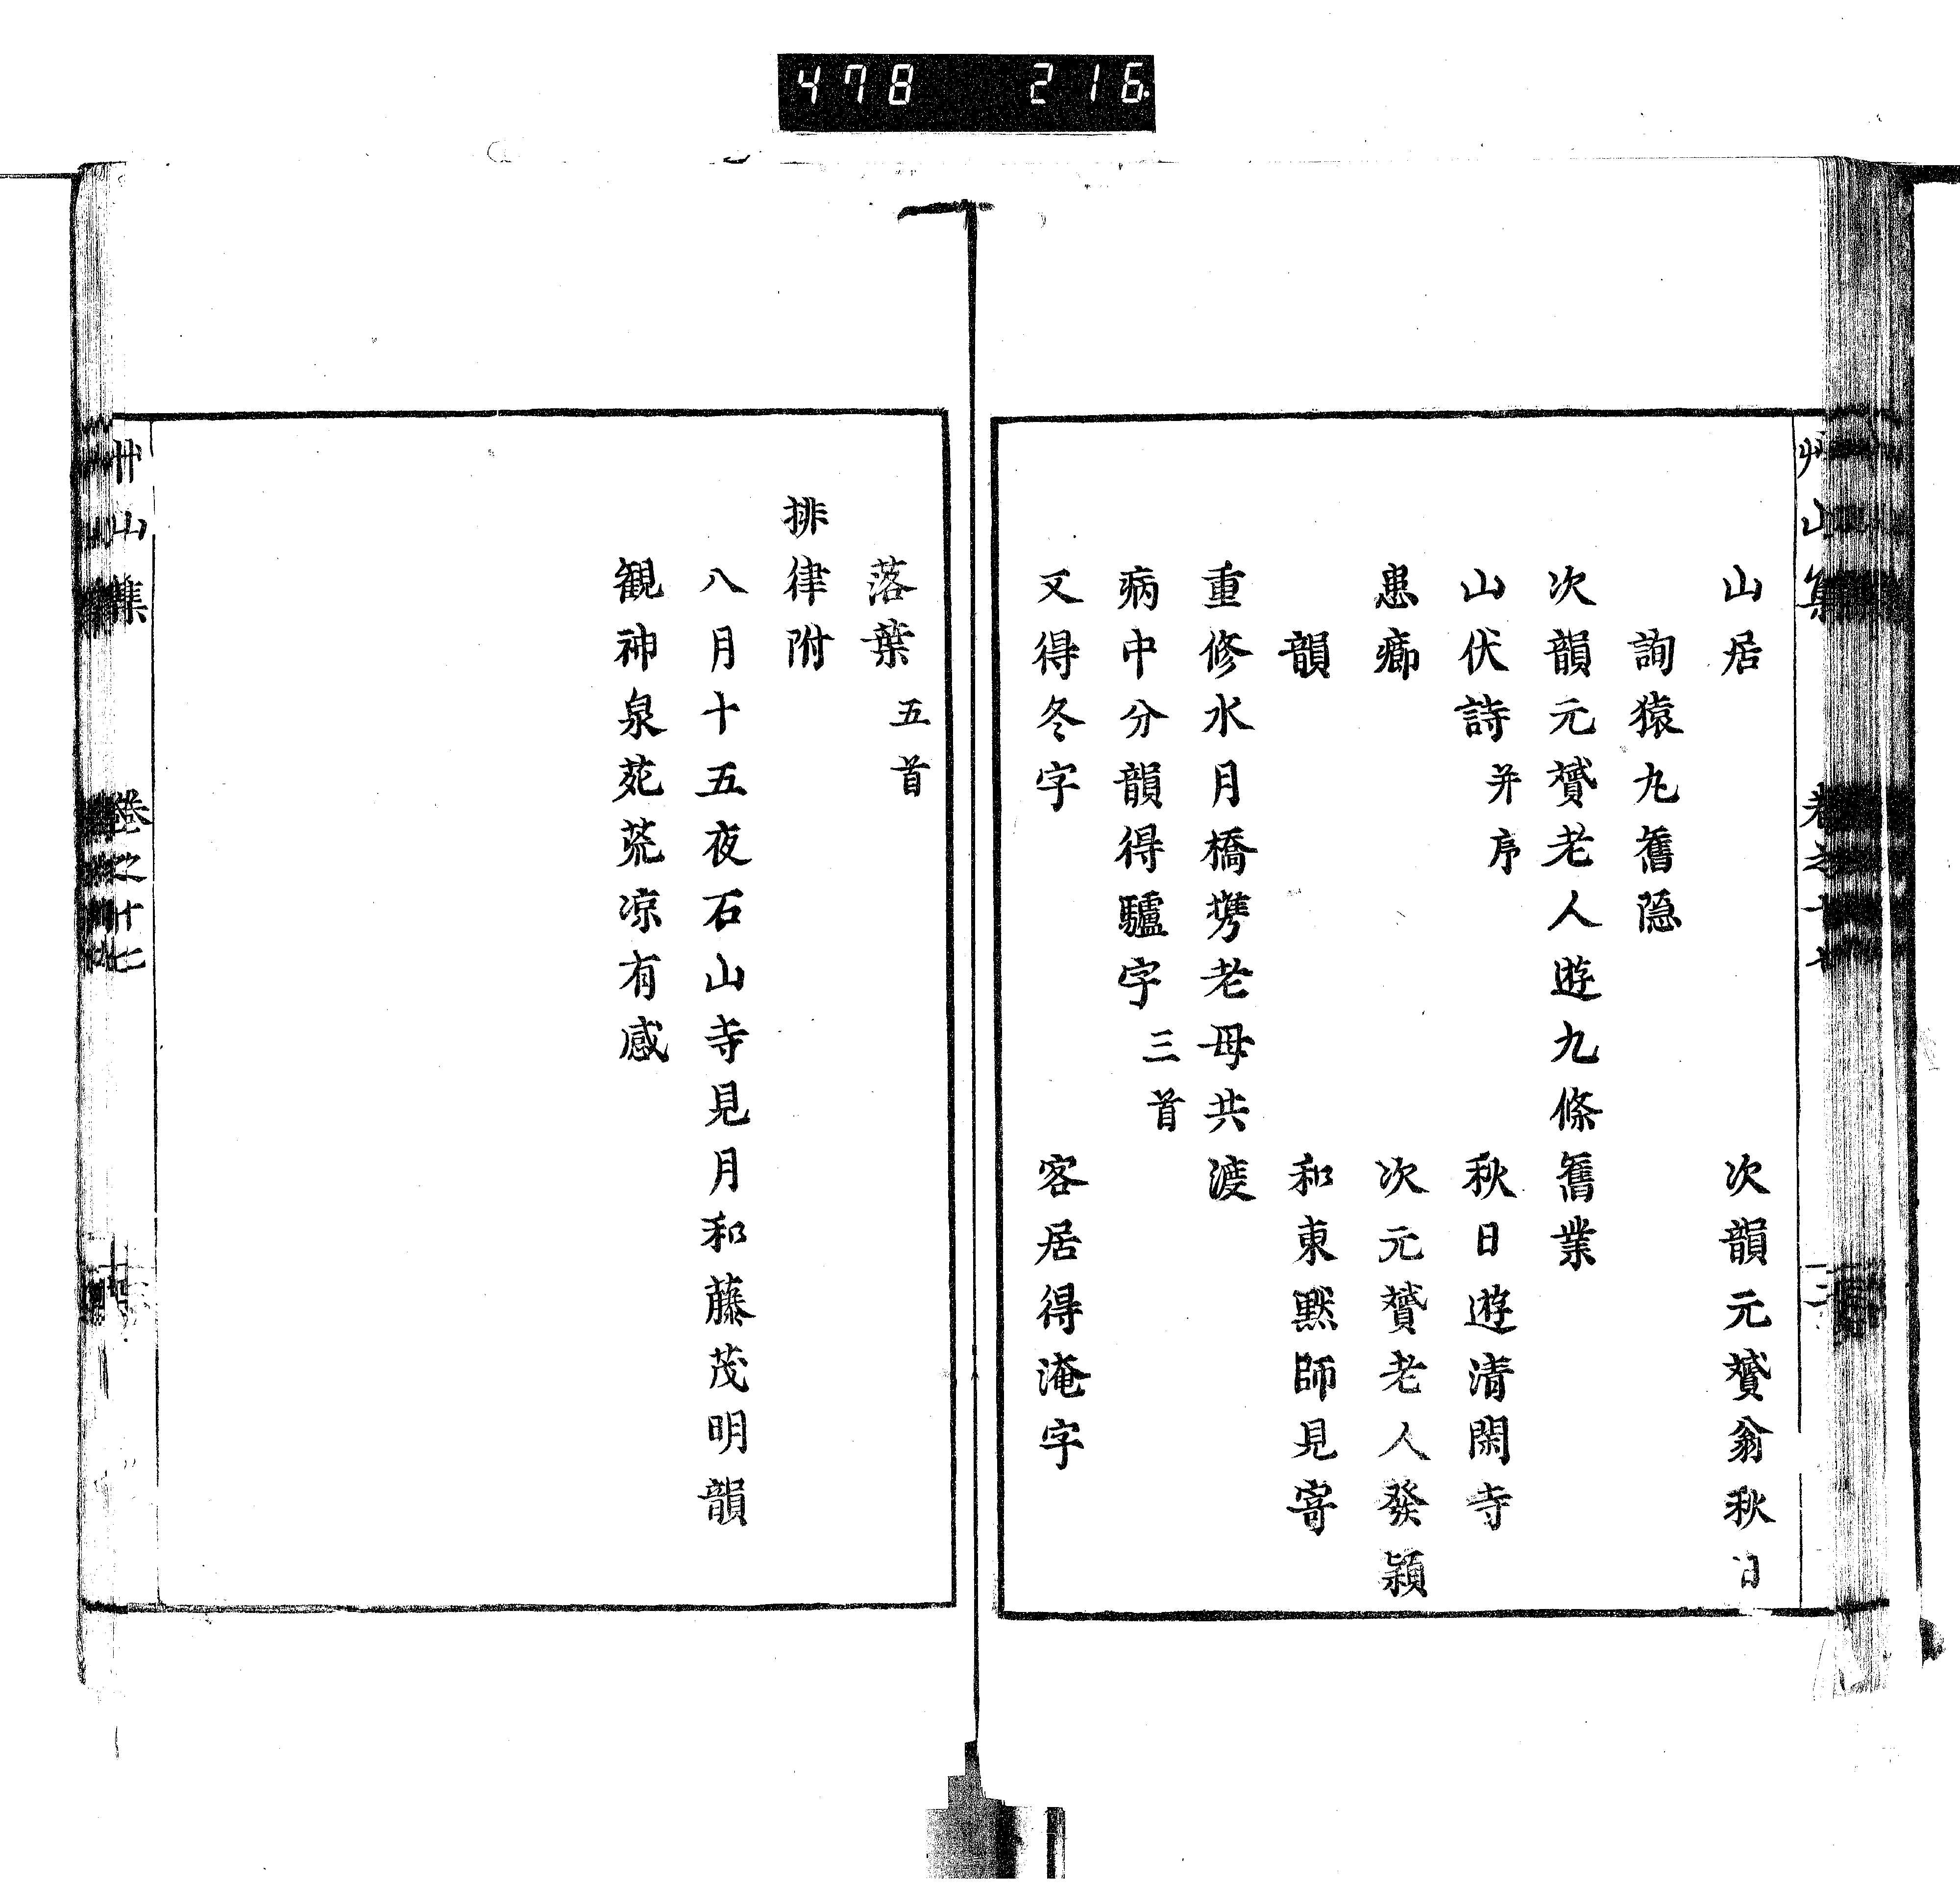 478 216
艸山集
卷之十七
山居 次韻元贇翁秋日
詢猿丸舊隠
次韻元贇老人遊九條舊業
山伏詩 并序 秋日遊清閑寺
患癤 次元贇老人發穎
韻 和東黙師見寄
重修水月橋携老母共渡
病中分韻得驢字 三首
又得冬字 客居得淹字
落葉 五首
排律附
八月十五夜石山寺見月和藤茂明韻
観神泉苑荒凉有感
艸山集
卷之十七